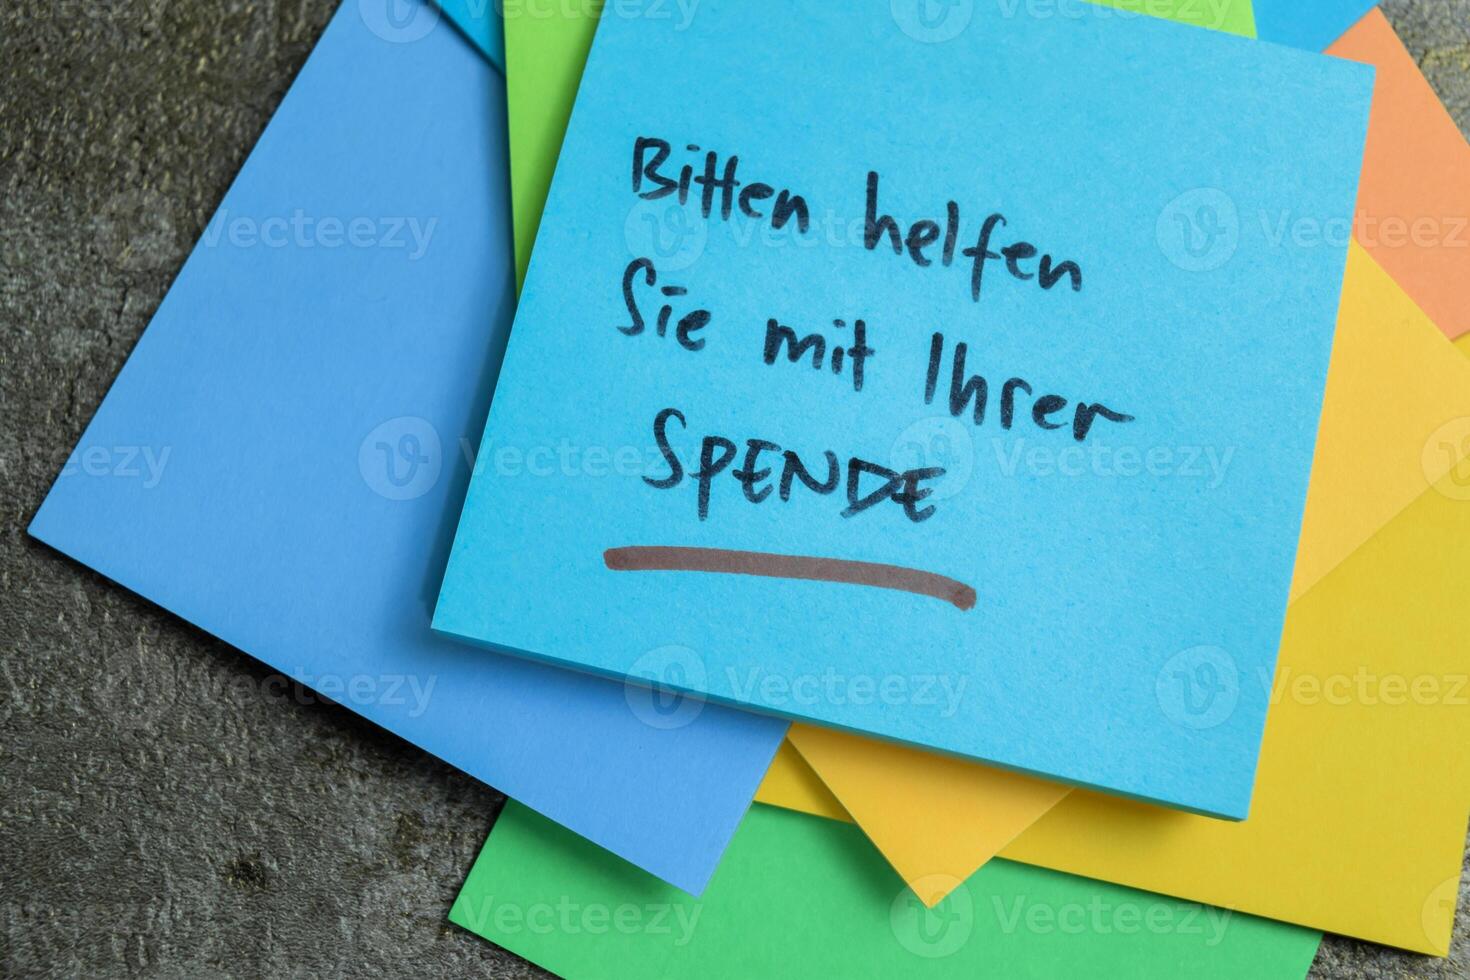 Bitten helfen
Sie mit Ihrer
SPENDE